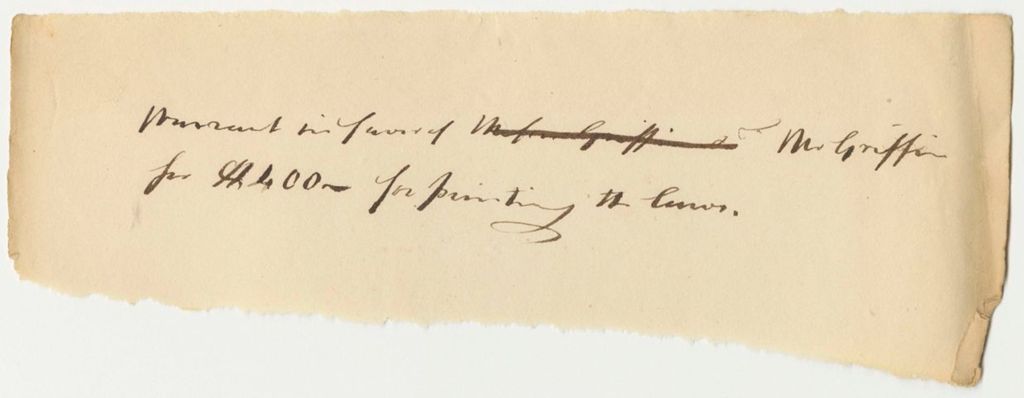 Warrant in favor of Mr Griffin
for $400 for printing the laws.